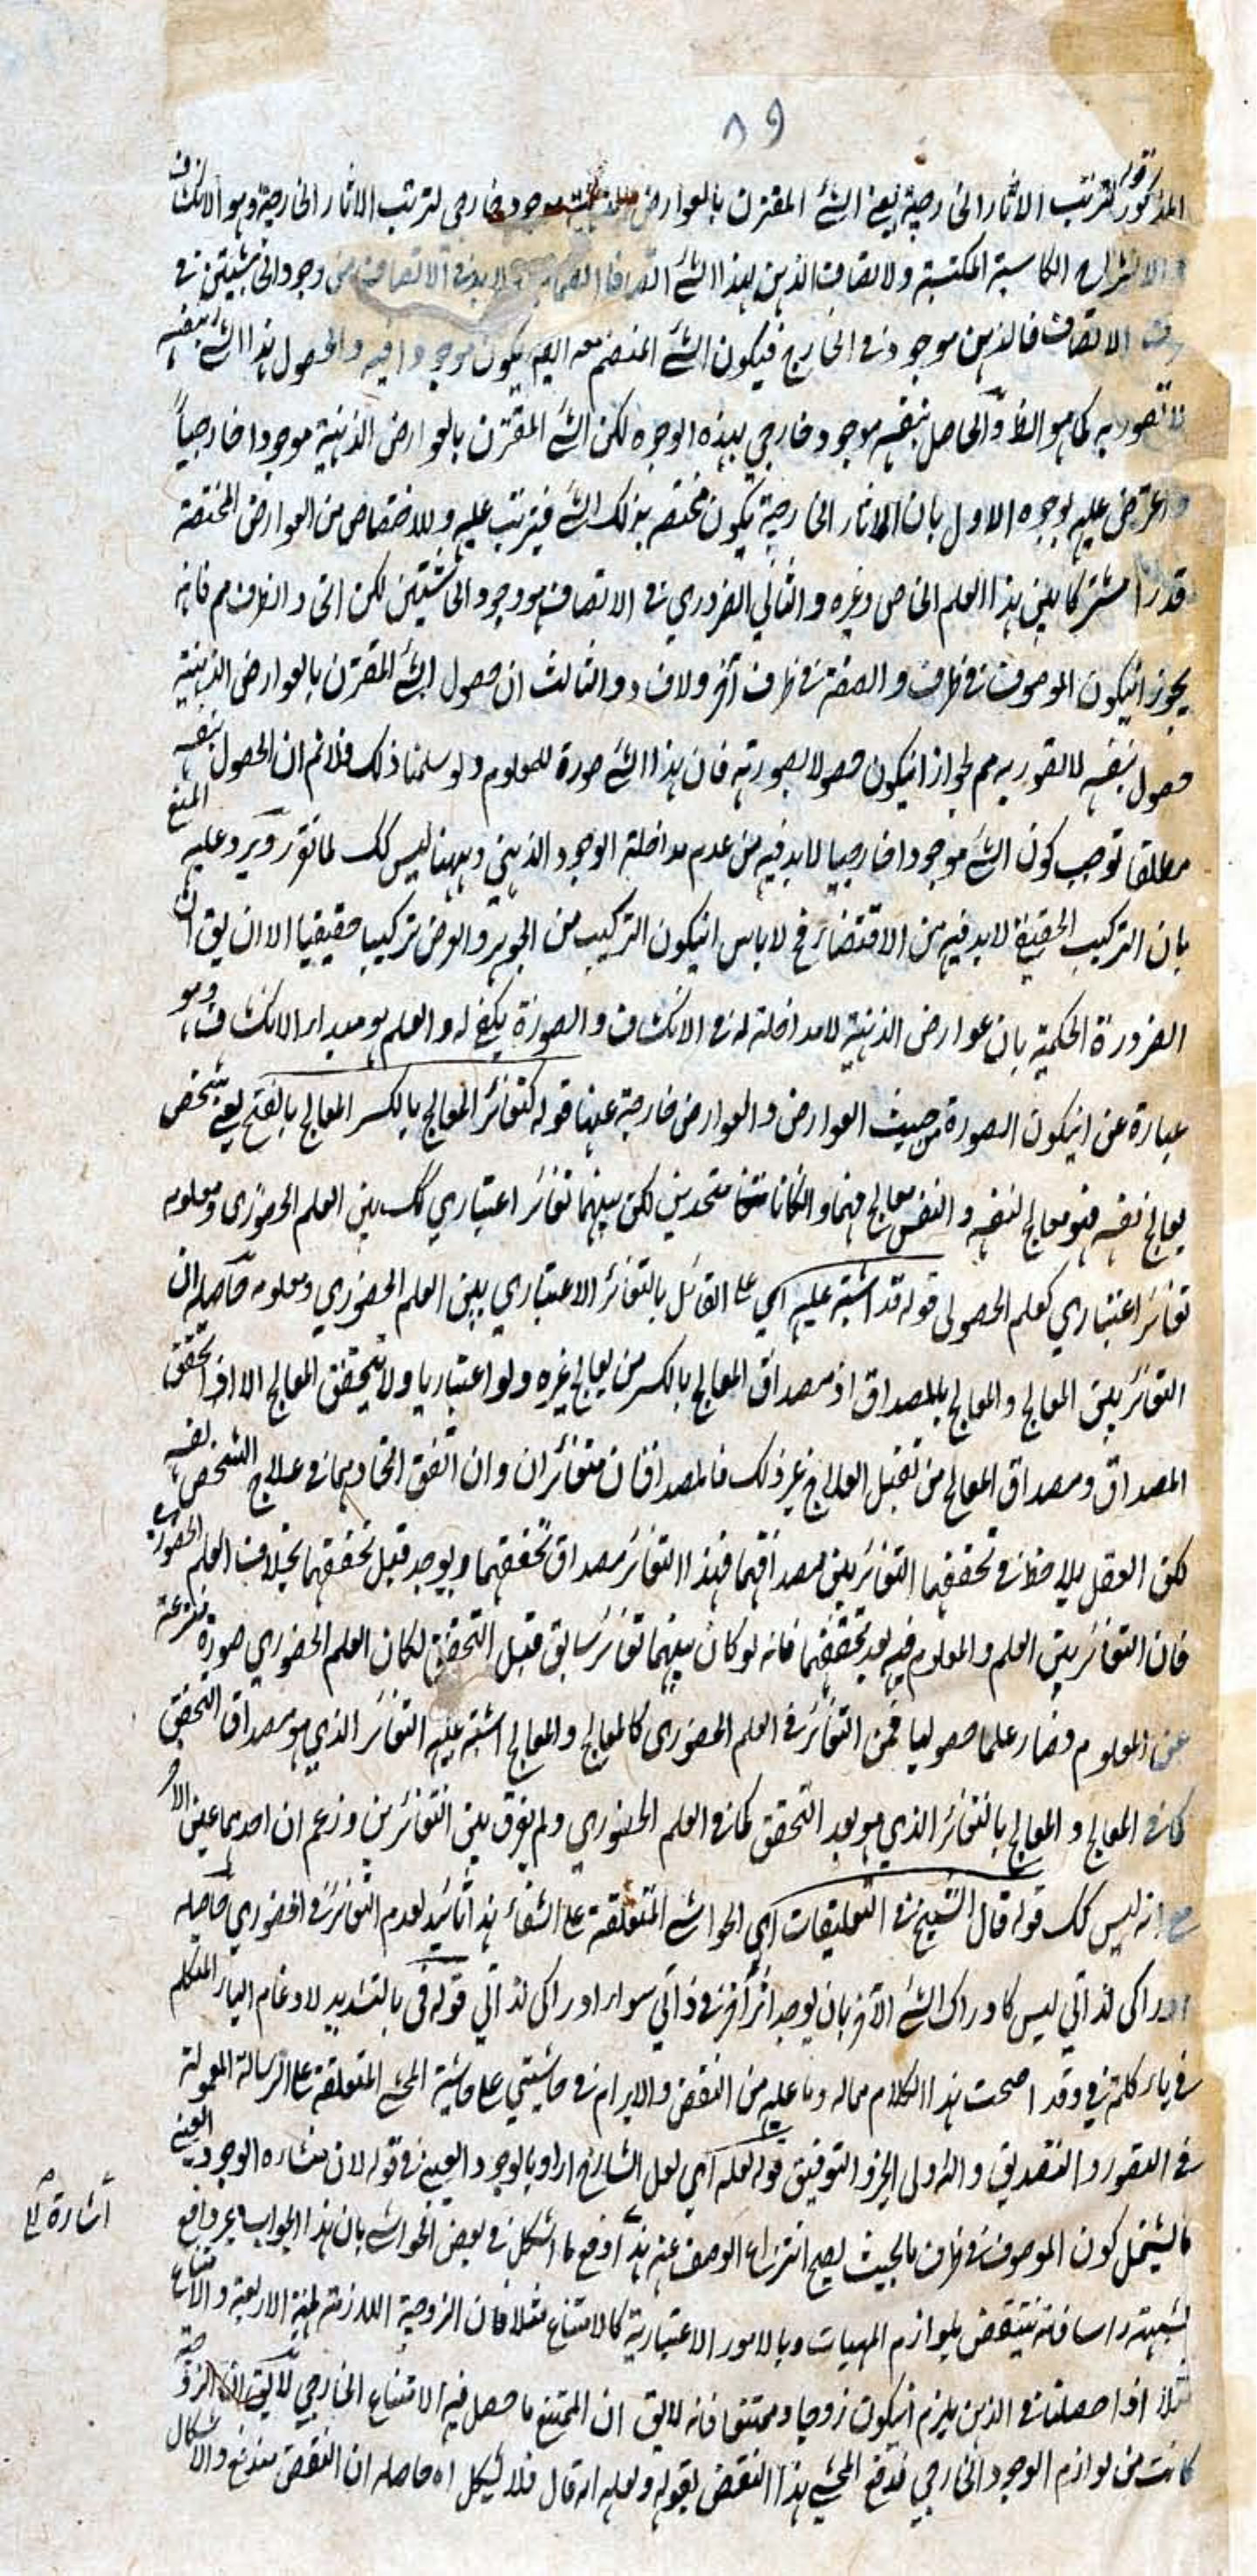 ٨٩
المذكور لترتب الاثار الخارجية يعني الشئ المقترن بالعوارض الذهنية موجود خارجي لترتب الاثار الخارجية وهو الانكشاف
الكاسبة المكتسبة ولاتصاف الذهن بهذا الشئ اتصافا انضماميا لابد في الاتصاف من وجود الحاشيتين في
ظرف الاتصاف فالذهن موجود في الخارج فيكون الشئ المنضم معه اليه يكون موجودا فيه والحصول هذا الشئ بنفسه
لا بصورته كما هو الظ والحاصل بنفسه موجود خارجي بهذه الوجوه لكن الشئ المقترن بالعوارض الذهنية موجودا خارجياً
واعترض عليه بوجوه الاول بان الاثار الخارجية يكون مختصه بذلك الشئ فيترتب عليه وللاختصاص من العوارض المختصة
قدرا مشتركا بين هذا العلم الخاص وغيره والثاني الضروري في الاتصاف هو وجود الحاشيتين لكن اتحاد الظرف مم فانه
يجوز انيكون الموصوف في ظرف والصفة في ظرف آخر والثالث ان حصول الشئ المقترن بالعوارض الذهنية
حصول بنفسه لا بصورته مم لجواز انيكون حصولا بصورته فان هذا الشئ صورة للمعلوم ولو سلمنا ذلك فلانم ان الحصول بنفسه
مطلقا توجب كون الشئ موجودا خارجيا لابد فيه من عدم مداخلة الوجود الذهني وههنا ليس كك لما تقرر ويرد عليه المنع
بان التركيب الحقيقي لابد فيه من الافتقار فح لاباس انيكون التركيب من الجوهر والعرض تركيبا حقيقيا الا ان يق ان
الضرورة الحكمية بان عوارض الذهنية لا مداخلة له في الانكشاف والصورة يكفي له والعلم هو مبدا الانكشاف وهو
عبارة عن انيكون الصورة من حيث العوارض والعوارض خارجة عنها قوله كتغائر المعالج بالكسر المعالج بالفتح يعني شخص
يعالج نفسه فهو معالج لنفسه والنفس معالج فهما وانكانا متحدين لكن بينهما تغائر اعتباري كك بين العلم الحضوري ومعلومه
تغائر اعتباري كعلم الحصولي قوله قد اشتبه عليه اي على القائل بالتغائر الاعتباري بين العلم الحضوري ومعلومه حاصله ان
التغائر بين المعالج والمعالج بالمصداق اذ مصداق المعالج بالكسر من يعالج غيره ولو اعتباريا ولا يتحقق المعالج الا اذا تحقق
المصداق ومصداق المعالج من تقبل العلاج غير ذلك فالمصداقان متغائران وان اتفق اتحادهما في علاج الشخص نفسه
لكن العقل يلاحظ في تحققهما التغائر بين مصداقهما فهذا التغائر مصداق تحققهما ويوجد قبل تحققهما بخلاف العلم الحضوري
فان التغائر بين العلم والمعلوم فيه بعد تحققهما فانه لو كان بينهما تغائر سابق قبل التحقق لكان العلم الحضوري صورة منتزعة
عن المعلوم فصار علما حصوليا فمن التغائر في العلم الحضوري كالمعالج والمعالج اشتبه عليه التغائر الذي هو مصداق التحقق
كما في المعالج والمعالج بالتغائر الذي هو بعد التحقق كما في العلم الحضوري ولم يفرق بين التغائرين وزعم ان احدهما عين الاخر
مع انه ليس كك قوله قال الشيخ في التعليقات اي الحواشي المتعلقة على الشفاء هذا تائيد لعدم التغائر في الحضوري حاصله
ادراكي لذاتي ليس كادراك الشئ الآخر بان يوجد اثر آخر في ذاتي سوا ادراكي لذاتي قوله في بالتشديد لادغام الياء المتكلم
في ياء كلمة في وقد اصحت هذا الكلام ماله وما عليه من النقض والابرام في حاشيتي على حاشية المحشي المتعلقة على الرسالة المعمولة
في التصور والتصديق والله ولى الخير والتوفيق قوله لعله اي لعل الشارح اراد بالوجود العيني في قوله لان منشاه الوجود العيني
ما يشتمل كون الموصوف في ظرف ما بحيث يصح انتزاع الوصف عنه هذا دفع لما اشكل في بعض الحواشي بان هذا الجواب غير دافع
لشبهته راسا فانه تنتقض بلوازم المهيات وبالامور الاعتبارية كالامتناع مثلا فان الزوجية اللازمة لمهية الاربعة والامتناع
مثلا اذا حصلتا في الذهن يلزم انيكون زوجا وممتنعا فانه لايق ان الممتنع ما حصل فيه الامتناع الخارجي
كانت من لوازم الوجود الخارجي فدفع المحشي هذا النقض بقوله ولعله انه قال فلا يشكل اه حاصله ان النقض مندفع والاشكال
اشارة الى